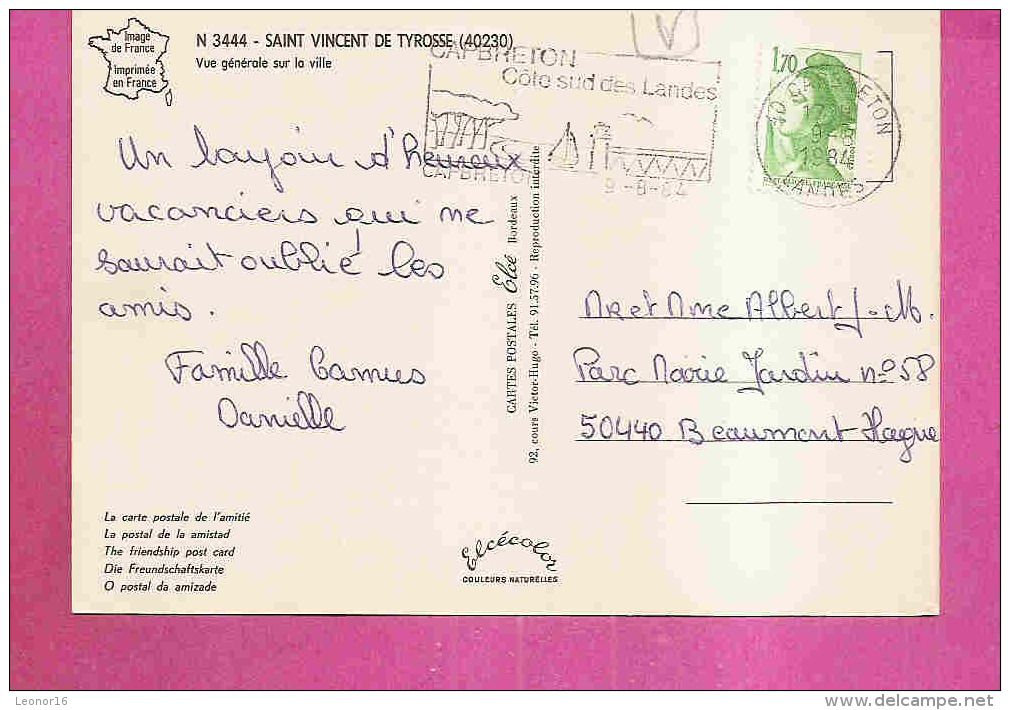 Image
de France
imprimée
en France
N 3444 - SAINT VINCENT DE TYROSSE (40230)
Vue générale sur la ville
CAPBRETON
Côte sud des Landes
CAPBRETON
9-8-84
1,70
40 CAPBRETON
17
9-8
1984
LANDES
Un bonjour d'heureux
vacanciers qui ne
saurait oublié les
amis.
Famille Camus
Danielle
CARTES POSTALES Elcé Bordeaux
92, cours Victor-Hugo - Tél. 91.57.96 - Reproduction interdite
Mr et Mme Albert J-M.
Parc Marie Jardin n° 58
50440 Beaumont Hague
La carte postale de l'amitié
La postal de la amistad
The friendship post card
Die Freundschaftskarte
O postal da amizade
Elcécolor
COULEURS NATURELLES
Leonor16
www.delcampe.net